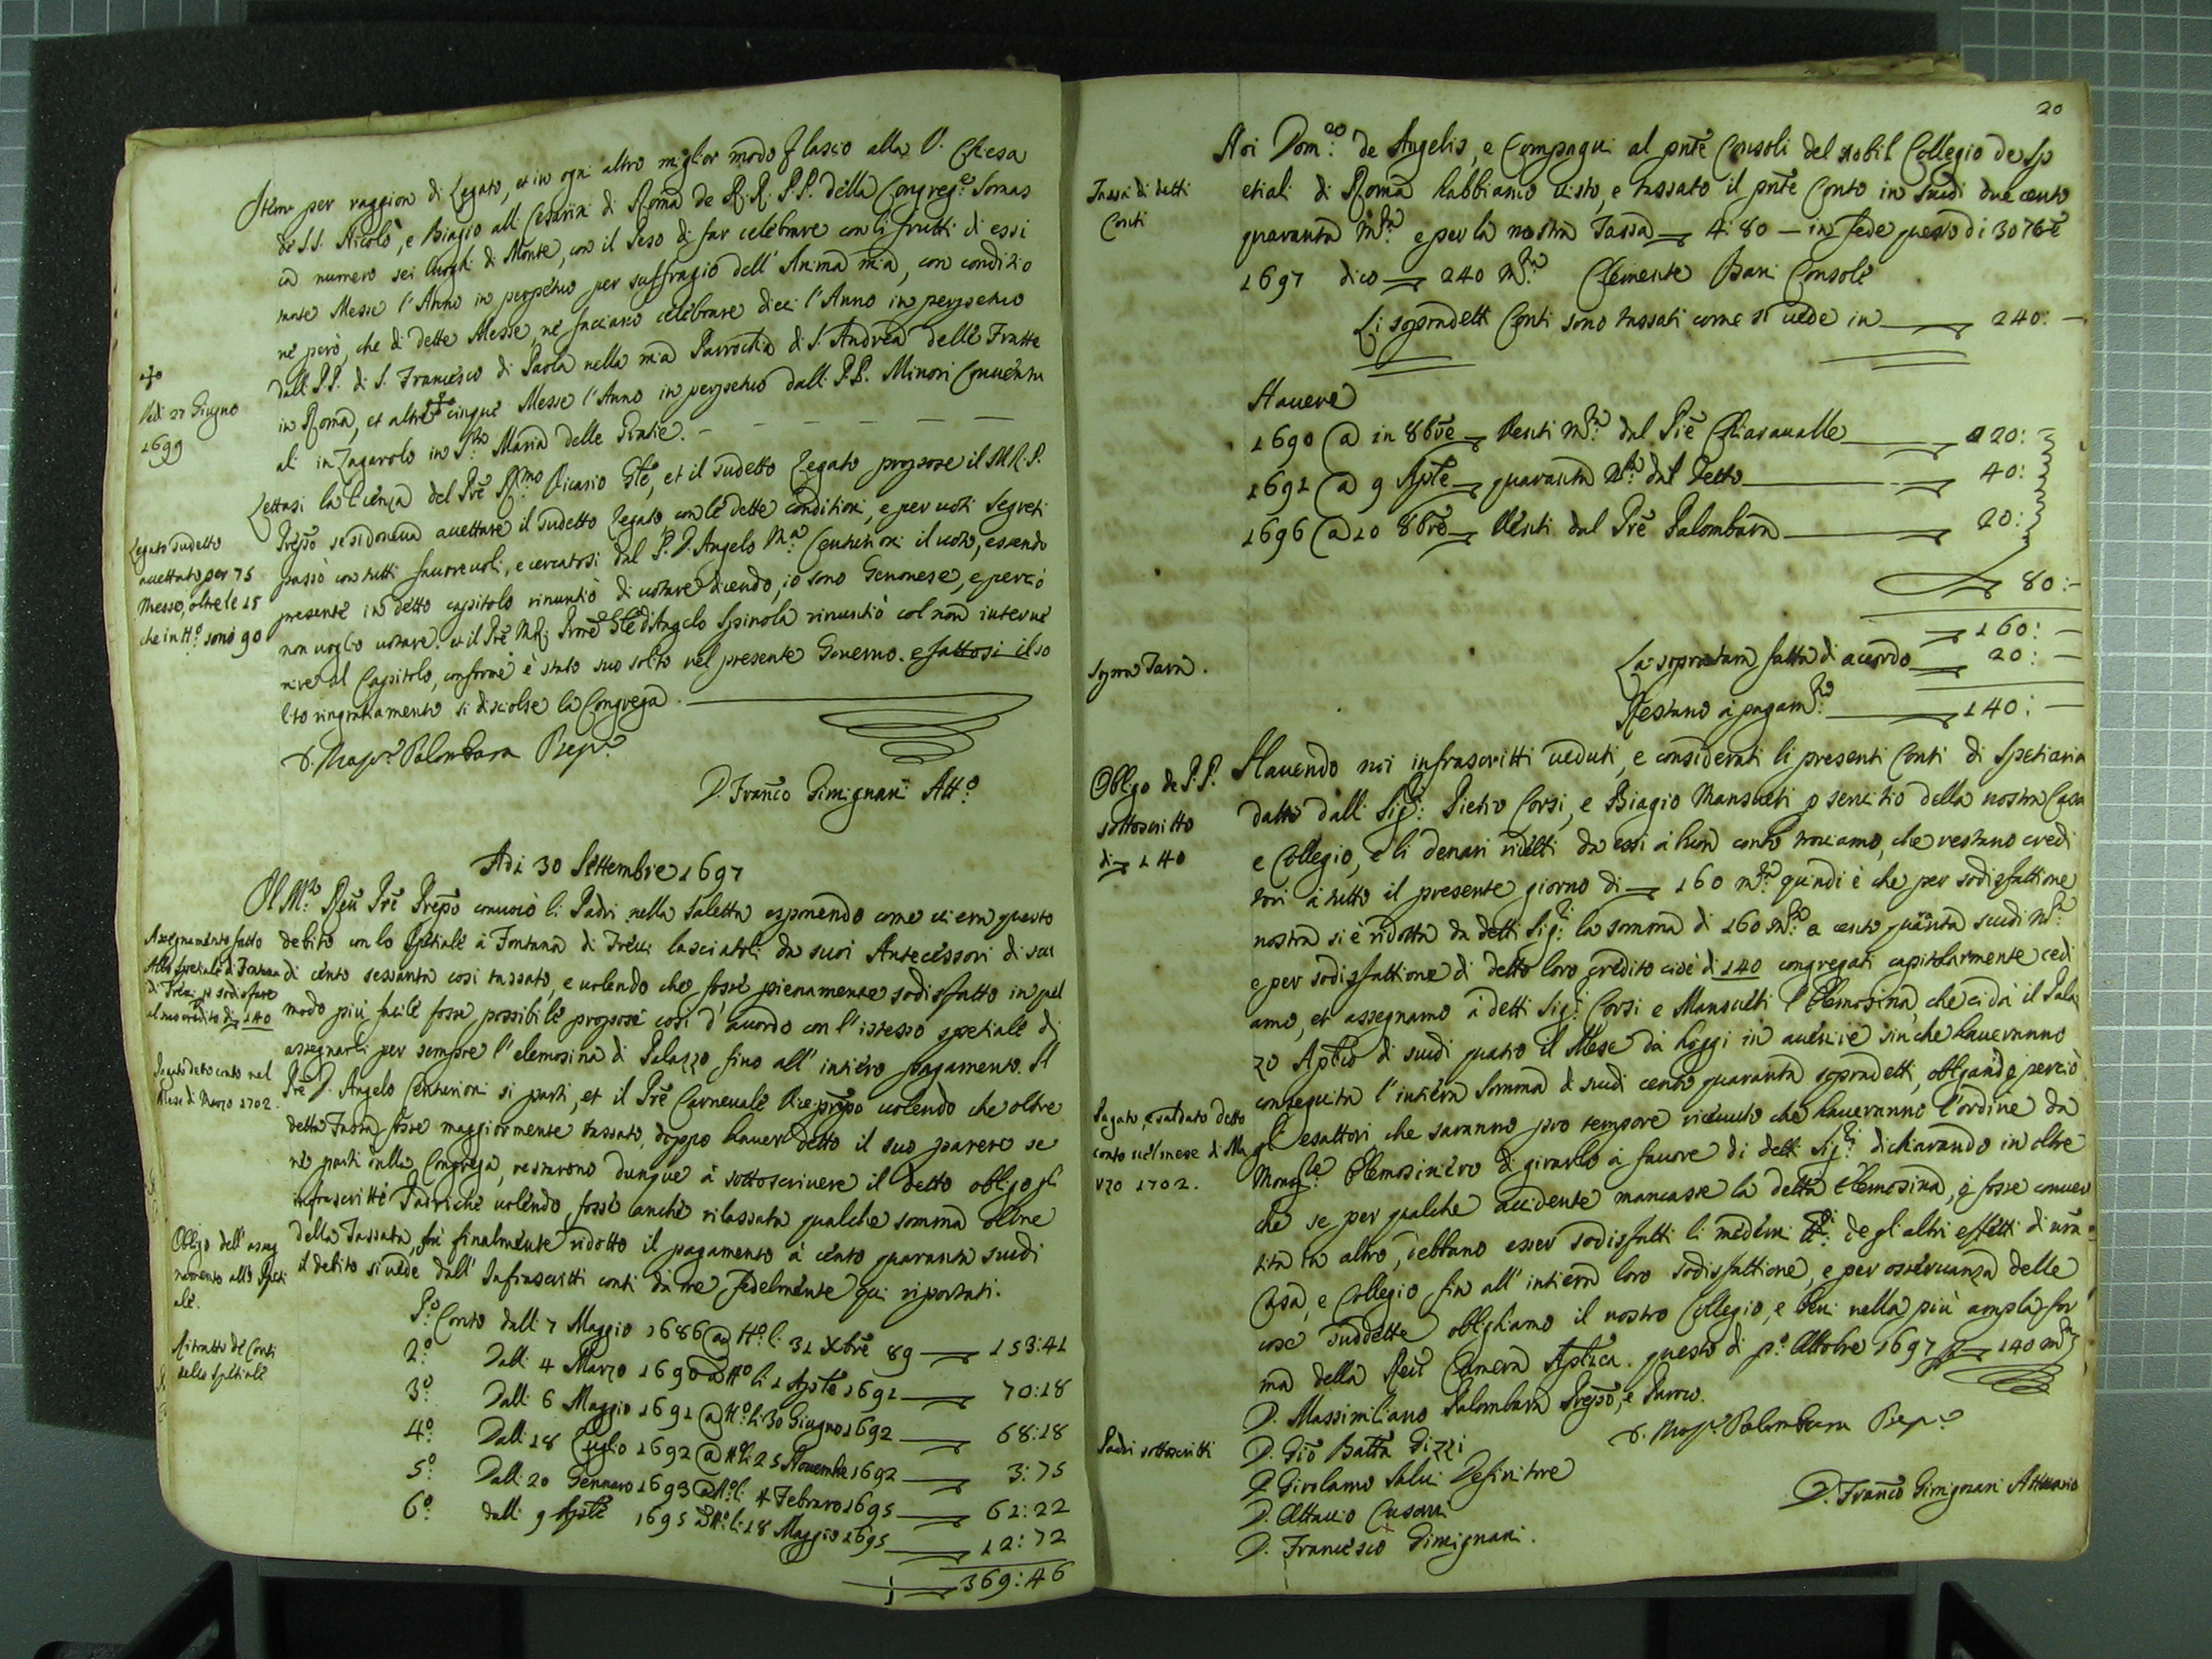 Item per raggion di Legato, et in ogni altro miglior modo lascio alla V. Chiesa
de SS. Nicolò, e Biagio alli Cesarini di Roma de R.R. P.P. della Congreg.e Somas
ca numero sei luoghi di Monte, con il peso di far celebrare con li frutti di essi
tante Messe l'Anno in perpetuo per suffragio dell'Anima mia, con conditio
ne però, che di dette Messe, ne facciano celebrare dieci l'Anno in perpetuo
dalli P.P. di S. Francesco di Paola nella mia Parrochia di S. Andrea delle Fratte
in Roma, et altre cinque Messe l'Anno in perpetuo dalli P.P. Minori Conventu
ali in Zagarolo in S.ta Maria delle Gratie.
A di 27 Giugno
1699
Lettasi la licenza del Prē R.mo Vicario Glē, et il sudetto Legato propose il M.R.P.
Prep̄o se si doveva accettare il sudetto Legato con le dette conditioni, e per voti segreti
passò con tutti favorevoli, e cercatosi dal P. D. Angelo M.a Centurioni il voto, essendo
presente in detto capitolo rinuntiò di votare dicendo, io sono Genovese, e perciò
non voglio votare. et il Prē M.R. Glē D. Angelo Spinola rinuntiò col non interue
nire al Capitolo, conforme è stato suo solito nel presente Governo. e fattosi il so
lito ringratiamento si disciolse la Congrega.
Legato sudetto
accettato per 75
Messe, oltre le 15
che in tt.o sono 90
D. Mass.o Palombara Prep.o
D. Franco Gimignani Att.o
Adi 30 Settembre 1697
Il M.to Reu Prē Prep̄o convocò li Padri nella saletta esponendo come vi era questo
debito con lo spetiale à Fontana di Trevi lasciatoli da suoi Antecessori di scu
di cento sessanta cosi tassato, e volendo che fosse pienamente sodisfatto in quel
modo più facile fosse possibile propose cosi d'acordo con l'istesso spetiale di
assegnarli per sempre l'elemosina di Palazzo fino all'intiero pagamento. Il
Prē D. Angelo Centurioni si partì, et il Prē Carnevale Vice prep̄o volendo che oltre
detta Tassa fosse maggiormente tassato, doppo haver detto il suo parere se
ne partì dalla Congrega, restarono dunque à sottoscrivere il detto obligo gl'
infrascritti Padri che volendo, fosse anche rilassata qualche somma oltre
della Tassata, fù finalmente ridotto il pagamento à cento quaranta scudi
il debito si vede dall'Infrascritti conti da me fedelmente qui riportati.
Assegnamento fatto
allo spetiale di Fontana
di Trevi p sodisfare
al suo credito di 140
Pagato detto conto nel
Mese di Marzo 1702.
Obligo dell'asseg
namento allo Speti
ale.
Ritratto de Conti
dello Spetiale
P.o Conto dalli 7 Maggio 1686 @ tt.o li 31 Xbrē 89 153:41
2.o Dalli 4 Marzo 1690 @ tt.o li 1 Aplē 1691 70:18
3.o Dalli 6 Maggio 1691 @ tt.o li 30 Giugno 1692 68:18
4.o Dalli 18 Luglio 1692 @ tt.o li 25 Novembre 1692 3:75
5.o Dalli 20 Gennaro 1693 @ tt.o li 4 Febraro 1695 61:22
6.o dalli 9 Aplē 1695 @ tt.o li 18 Maggio 1695 12:72
369:46
20
Noi Dom.co de Angelis, e Compagni al pntē Consoli del nobil Collegio de Sp
etiali di Roma habbiamo visto, e tassato il pntē Conto in scudi duecento
quaranta m.ta e per la nostra Tassa 4:80 — in fede questo di 30 7brē
1697 dico 240 m.ta Clemente Consolē
Tassa di detti
Conti
Li sopradetti Conti sono tassati come si vede in 240: —
Havere
1690 @ in 8brē Venti m.ta dal Prē Chiaravalle 20: —
1691 @ 9 Aplē quaranta m.ta dal Detto 40:
1696 @ 10 8brē Venti dal Prē Palombara 20:
80: —
160: —
La sopratara fatta di acordo 20: —
Restano à pagam.to 140: —
Sopra Tara.
Havendo noi infrascritti veduti, e considerati li presenti Conti di Spetiaria
datti dalli Sig.ri Pietro Corsi, e Biagio Mansueti p servitio della nostra Casa
e Collegio, e li denari riceuti da essi à buon conto troviamo, che restano credi
tori à tutto il presente giorno di 160 m.ta quindi è che per sodisfattione
nostra si è ridotta da detti Sig.ri la somma di 160 m.ta a cento quaranta scudi m.ta
e per sodisfattione di detto loro credito cioè di 140 congregati capitolarmente cedi
amo, et assegnamo à detti Sig.ri Corsi e Mansueti l'Elemosina, che ci dà il Palaz
zo Aplico di scudi quatro il Mese da hoggi in avenire sin che haveranno
conseguita l'intiera somma di scudi cento quaranta sopradetti, obligando perciò
gl'esattori che saranno pro tempore ricevuto che haveranno l'ordine da
Mons.re Elemosiniero di girarlo à favore di detti Sig.ri dichiarando in oltre
che se per qualche accidente mancasse la detta elemosina, ò fosse conver
tita in altro, debbano esser sodisfatti li medemi de gl'altri effetti di nr̄a
Casa, e Collegio fin all'intiera loro sodisfattione, e per osservanza delle
cose suddette oblighiamo il nostro Collegio, e beni nella più ampla for
ma della Reū Camera Aplica. questo di p.o Ottobre 1697 140 m.ta
Obligo de P.P.
sottoscritto
di 140
Pagato, e saldato detto
conto nel mese di Ma
rzo 1702.
Padri sottoscritti
D. Massimiliano Palombara Prep̄o, e Paroco.
D. Giō Batta Gizzi
D. Girolamo Salui Definitore
D. Ottavio Cusani
D. Francesco Gimignani.
D. Mass.o Palombara Prep.o
D. Franco Gimignani Attuario